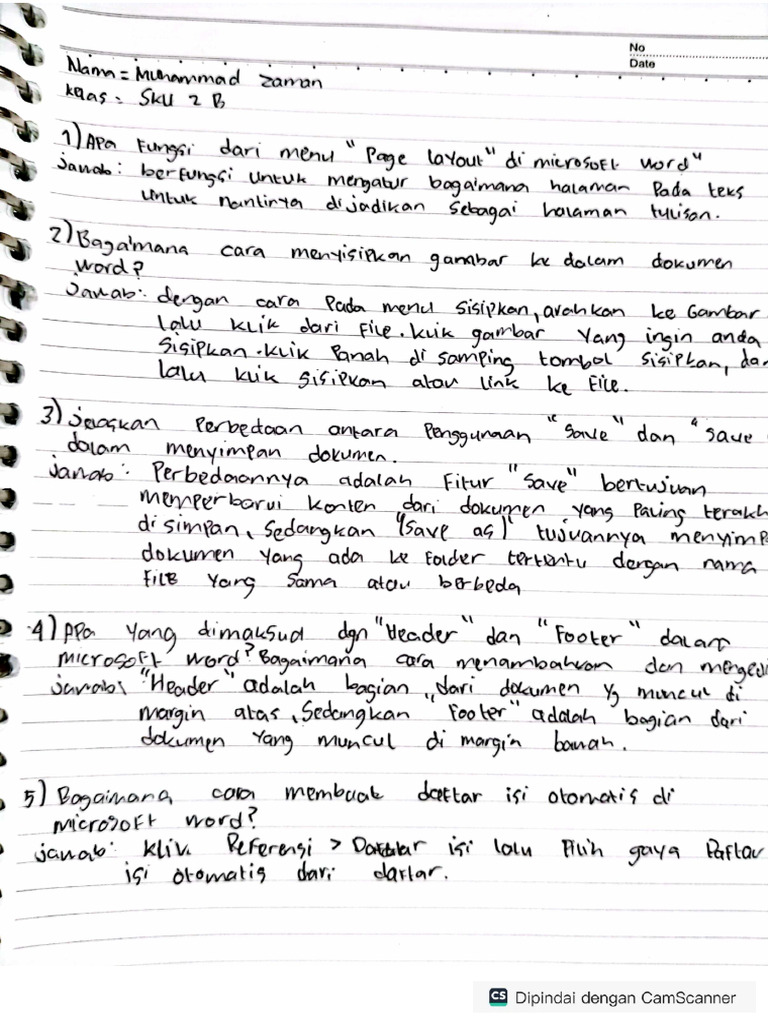 No
Date
Nama = Muhammad Zaman
Kelas = SKU 2 B
1) Apa Fungsi dari menu "Page layout" di microsoft word"
Jawab : berfungsi untuk mengatur bagaimana halaman Pada teks
untuk nantinya dijadikan sebagai halaman tulisan.
2) Bagaimana cara menyisipkan gambar ke dalam dokumen
word?
Jawab : dengan cara Pada menu Sisipkan, arahkan ke Gambar
lalu klik dari File. Klik gambar Yang ingin anda
Sisipkan. Klik Panah di samping tombol sisipkan, dan
lalu klik sisipkan atau link ke File.
3) jelaskan Perbedaan antara Penggunaan "Save" dan "save
dalam menyimpan dokumen.
Jawab : Perbedaannya adalah Fitur "Save" bertujuan
memperbarui konten dari dokumen yang Paling terakh
disimpan, Sedangkan "(Save as)" tujuannya menyimp
dokumen yang ada ke Folder tertentu dengan nama
File Yang Sama atau berbeda
4) APa Yang dimaksud dgn "Header" dan "Footer" dalam
microsoft word? Bagaimana cara menambahkan dan mengedi
Jawab : "Header" adalah bagian dari dokumen yg muncul di
margin atas, Sedangkan "Footer" adalah bagian dari
dokumen Yang muncul di margin bawah.
5) Bagaimana cara membuat daftar isi otomatis di
microsoft word?
Jawab : klik Referensi > Daftar isi lalu Pilih gaya Daftar
isi otomatis dari daftar.
CS Dipindai dengan CamScanner